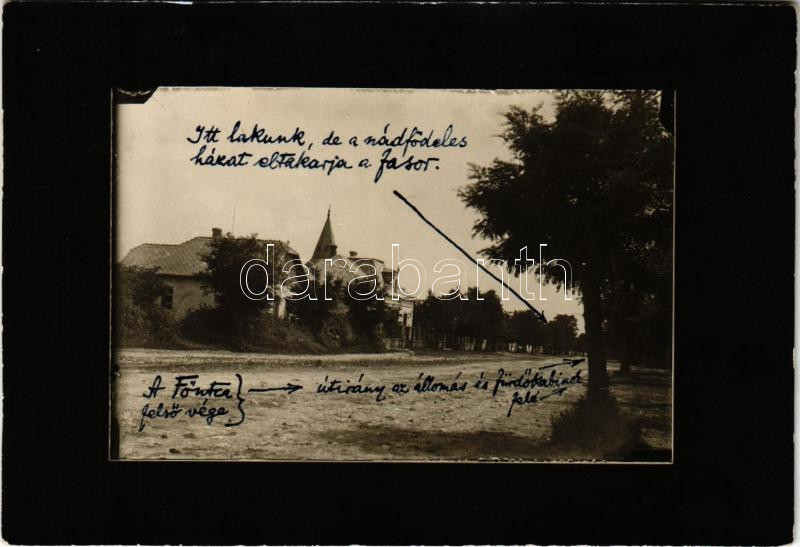 Itt lakunk, de a nádfödeles
házat eltakarja a fasor.
darabanth.com
A Főutca
felső vége
útirány az állomás és fürdőkabinok
felé